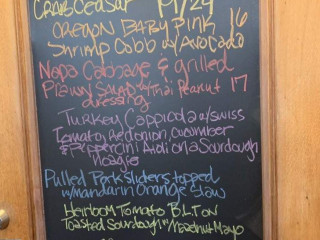 CRAB CeaSar 19/24
OREGON BABY PINK 16
Shrimp Cobb w/Avocado
Napa Cabbage & grilled
PRAWN SALAD w/Thai Peanut 17
dressing
Turkey Cappicola w/swiss
Tomato, Red onion, Cucumber
& Peppercini Aioli on a Sourdough
Hoagie
Pulled Pork sliders topped
w/mandarin Orange Slaw
Heirloom Tomato B.L.T on
Toasted Sourdough w/ Mayo